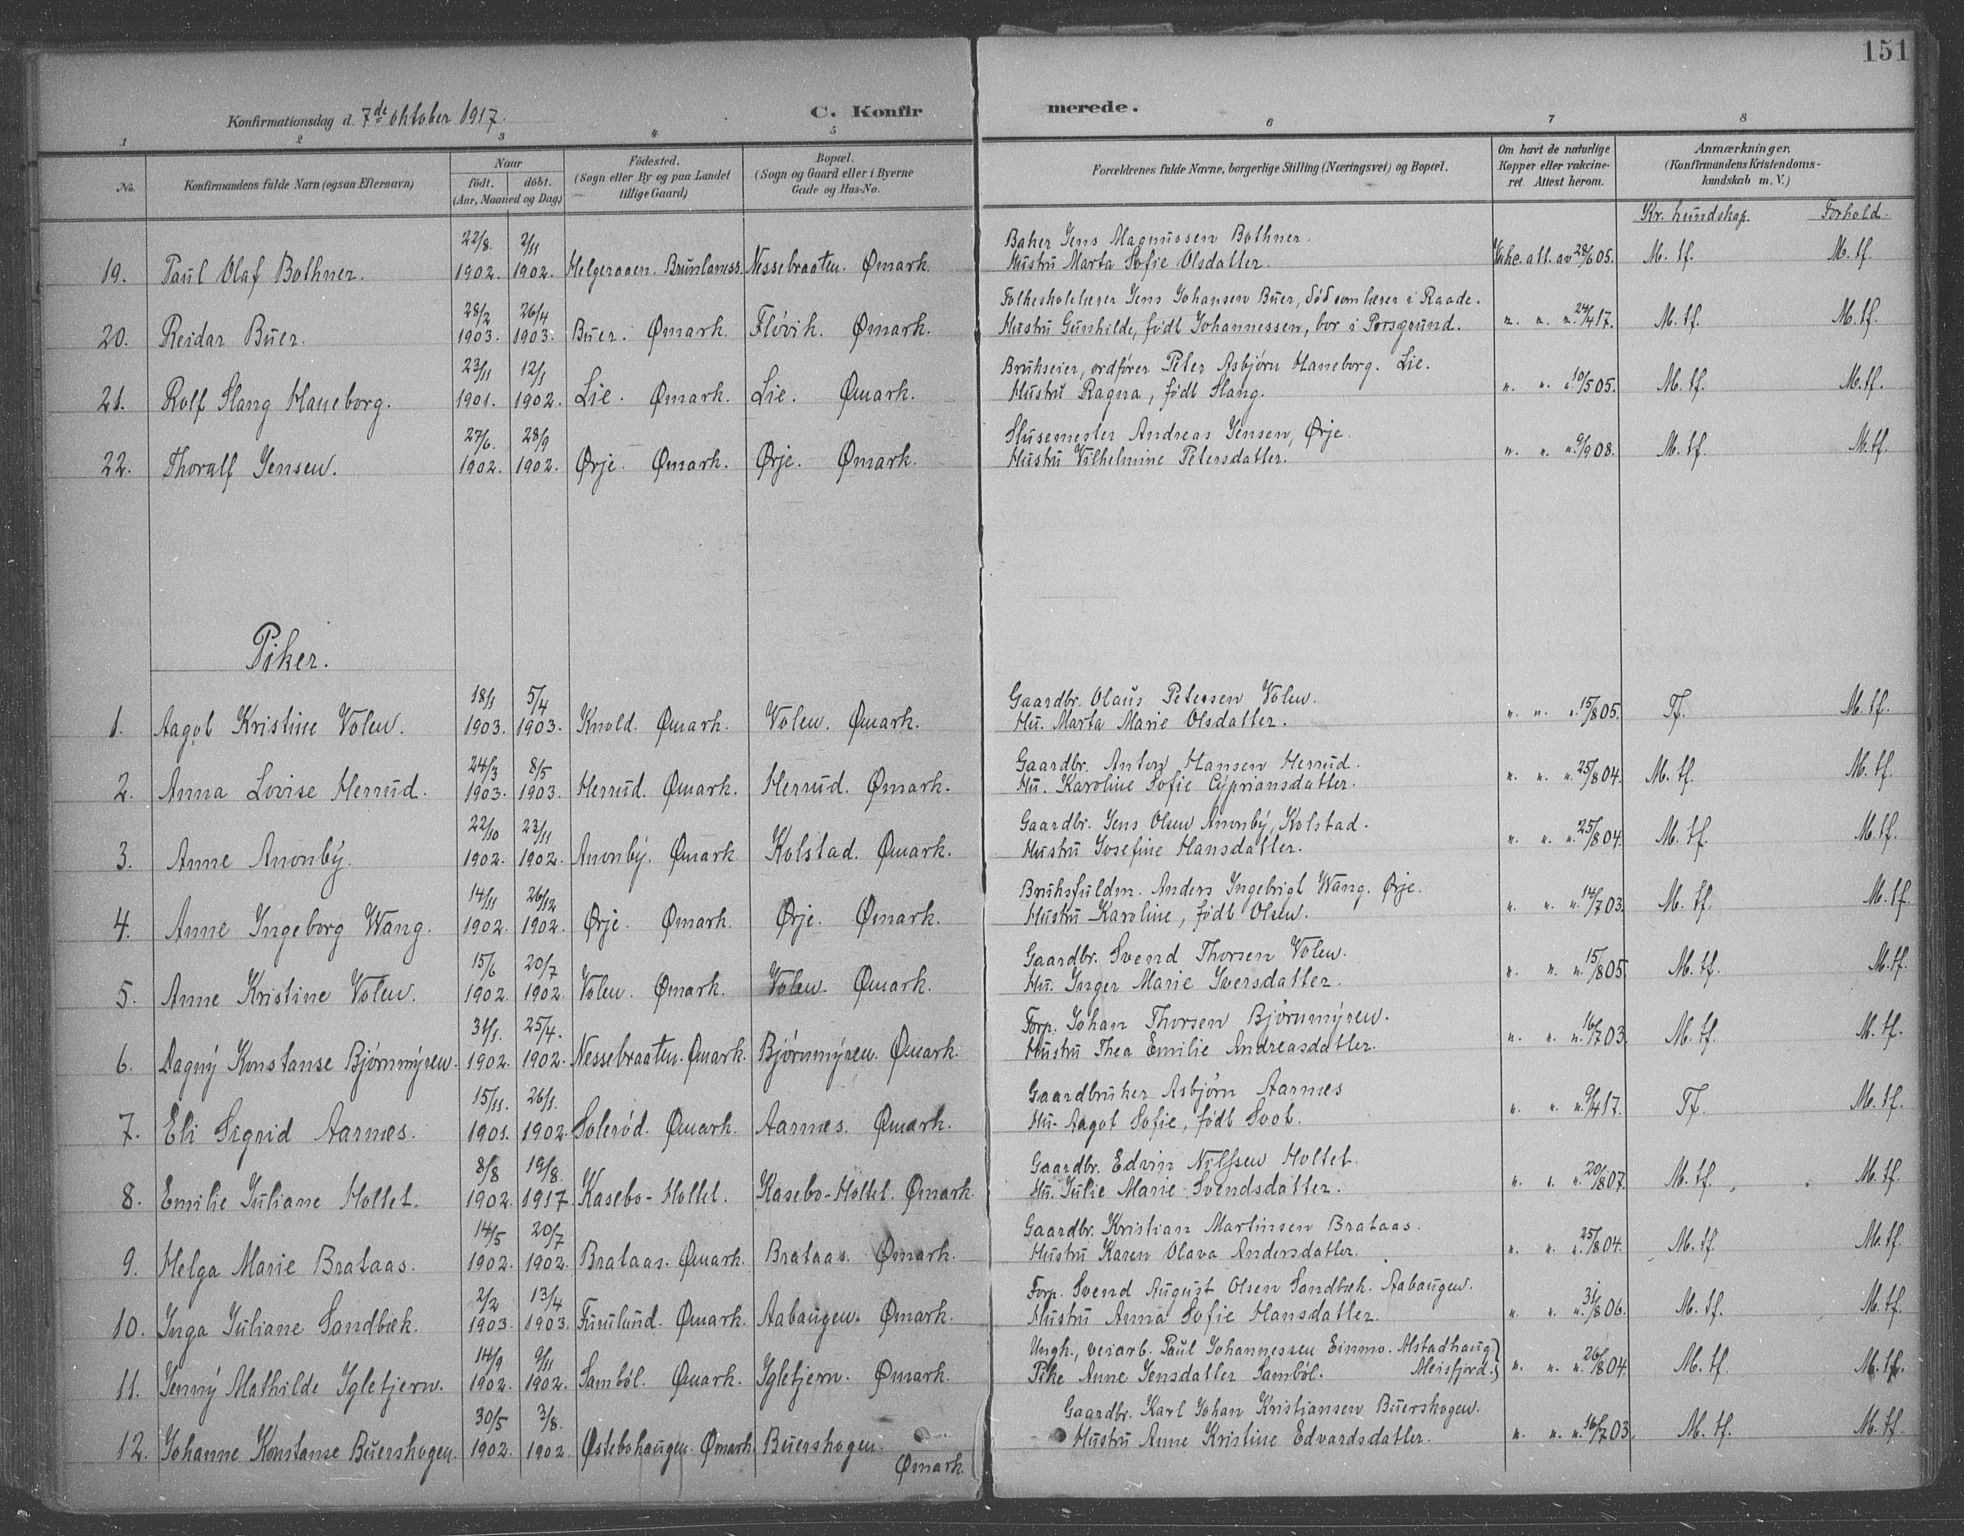 151
Konfirmationsdag d. 7de oktober 1917. C. Konfir merede.
1 2 3 4 5 6 7 8
No. Konfirmandens fulde Navn (ogsaa Efternavn) Naar født. døbt. (Aar, Maaned og Dag) Fødested. (Sogn eller By og paa Landet tillige Gaard) Bopæl. (Sogn og Gaard eller i Byerne Gade og Hus-No. Forældrenes fulde Navne, borgerlige Stilling (Næringsvei) og Bopæl. Om havt de naturlige Kopper eller vakcineret. Attest herom. Anmærkninger. (Konfirmandens Kristendomskundskab m. V.)
Kr. kundskap. Forhold.
22/8. 2/11 Baker Jens Magnussen Bothner.
19. Paul Olaf Bothner. 1902. 1902. Helgeroaen. Brunlanæss Nessebraaten. Ømark. Hustru Marta Sofie Olsdatter. Vakc. att. av 28/6 05. M. tf. M. tf.
28/2 26/4 Folkeskolelærer Jens Johansen Buer, død som lærer i Raade.
20. Reidar Buer. 1903. 1903. Buer. Ømark. Fløvik. Ømark. Hustru Gunhilde, født Johannessen, bor i Porsgrund. " " " 24/4 17. M. tf. M. tf.
23/11 12/1 Brukseier, ordfører Peter Asbjørn Haneborg. Lie.
21. Rolf Slang Haneborg. 1901. 1902. Lie. Ømark. Lie. Ømark. Hustru Ragna, født Slang. " " " 10/5 05. M. tf. M. tf.
27/6 28/9 Slusemester Andreas Jensen, Ørje.
22. Thoralf Jensen. 1902. 1902. Ørje. Ømark. Ørje. Ømark. Hustru Vilhelmine Petersdatter. " " " 9/9 08. M. tf. M. tf.
Piker.
18/1 5/4 Gaardbr. Olaus Petersen Volen.
1. Aagot Kristine Volen. 1903. 1903. Knold. Ømark. Volen. Ømark. Hu. Marta Marie Olsdatter. " " " 15/8 05. Tf. M. tf.
24/3 8/5 Gaardbr. Anton Hansen Herrud.
2. Anna Lovise Herrud. 1903. 1903. Herrud. Ømark. Herrud. Ømark. Hu. Karoline Sofie Cypriansdatter. " " " 25/8 04. M. tf. M. tf.
22/10 23/11 Gaardbr. Jens Olsen Anonby, Kolstad.
3. Anne Anonby. 1902. 1902. Anonby. Ømark Kolstad. Ømark. Hustru Josefine Hansdatter. " " " 25/8 04. M. tf. M. tf.
14/11 26/12 Bruksfuldm. Anders Ingebrigt Wang. Ørje.
4. Anne Ingeborg Wang. 1902. 1902. Ørje. Ømark. Ørje. Ømark. Hustru Karoline, født Olsen. " " " 14/7 03. M. tf. M. tf.
15/6 20/7 Gaardbr. Svend Thorsen Volen.
5. Anne Kristine Volen. 1902. 1902. Volen. Ømark. Volen. Ømark. Hu. Inger Marie Iversdatter. " " " 15/8 05. M. tf. M. tf.
31/1. 25/4. Forp. Johan Thorsen Bjørnmyren.
6. Dagny Konstanse Bjørnmyren. 1902. 1902. Nessebraaten. Ømark. Bjørnmyren. Ømark. Hustru Thea Emilie Andreasdatter. " " " 16/7 03. M. tf. M. tf.
15/11. 26/1. Gaardbruker Asbjørn Aarnes
7. Eli Sigrid Aarnes. 1901. 1902. Solerød. Ømark. Aarnes. Ømark. Hu. Aagot Sofie, født Soot. " " " 9/4 17. Tf. M. tf.
8/8 19/8. Gaardbr. Edvin Nilssen Holtet.
8. Emilie Juliane Holtet. 1902. 1917. Kasebo-Holtet. Kasebo-Holtet. Ømark. Hu. Julie Marie Svendsdatter. " " " 20/8 07. M. tf. M. tf.
14/5 20/7 Gaardbr. Kristian Martinsen Brataas.
9. Helga Marie Brataas. 1902. 1902. Brataas. Ømark. Brataas. Ømark. Hustru Karen Olava Andersdatter. " " " 25/8 04. M. tf. M. tf.
2/2 13/4 Forp. Svend August Olsen Sandbæk. Aabaugen.
10. Inga Juliane Sandbæk. 1903. 1903. Furulund. Ømark. Aabaugen. Ømark. Hustru Anna Sofie Hansdatter. " " " 31/8 06. M. tf. M. tf.
14/9 9/11 Ungk., veiarb. Paul Johannessen Einmo. Alstadhaug
11. Jenny Mathilde Igletjern. 1902. 1902. Sambøl. Ømark. Igletjern. Ømark. Pike Anne Jensdatter Sambøl. Meisfjord. " " " 26/8 04. M. tf. M. tf.
30/5 3/8. Gaardbr. Karl Johan Kristiansen Buerskogen.
12. Johanne Konstanse Buerskogen. 1902. 1902. Østebohaugen. Ømark. Buerskogen. Ømark. Hustru Anne Kristine Edvardsdatter. " " " 16/7 03. M. tf. M. tf.